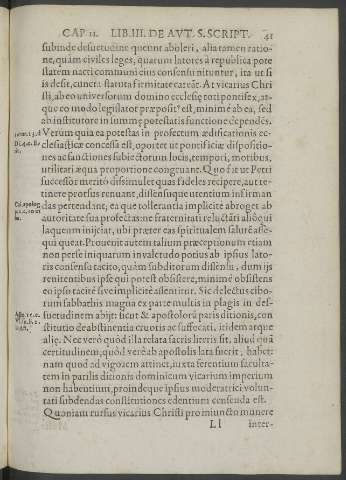 CAP. II. LIB. III. DE AVT. S. SCRIPT. 41
subinde desuetudine queunt aboleri, alia tamen ratio-
ne, quàm civiles leges, quarum latores à republica pote
statem nacti communi eius consensu nituntur, ita ut si
is desit, cuncta statuta firmitate careāt. At vicarius Chri
sti, ab eo universorum domino ecclesię toti pontifex, at-
que eo modo legislator præpositꝰ est, minimè ab ea, sed
ab institutore in summę potestatis functione dependēs.
Verum quia ea potestas in profectum ædificationis ec-
clesiasticæ concessa est, oportet ut pontificiæ dispositio-
nes ac sanctiones subiectorum locis, tempori, moribus,
utilitati æqua proportione congruant. Quo fit ut Petri
successor meritò dissimulet quas fideles recipere, aut re
tinere prorsus renuant, dissensique utentium infirman
das pertendant; ea que tollerantia implicitè abroget ab
autoritate sua profectas: ne fraternitati reluctāti alioqui
laqueum iniiciat, ubi præter eas spiritualem salutē asse-
qui queat. Provenit autem talium præceptionum etiam
non perse iniquarum invaletudo potius ab ipsius lato-
ris consensu tacito, quàm subditorum dissēsu, dum ijs
renitentibus ipse qui potest obsistere, minimè obsistens
eo ipso tacitè sive implicitè assentirit. Sic delectus cibo-
rum sabbathis magna ex parte multis in plagis in des-
suetudinem abijt: sicut & apostolorū paris ditionis, con
stitutio de abstinentia cruoris ac suffocati, itidem atque
alię. Nec verò quòd illa relata sacris literis sit, aliud quā
certitudinem, quòd verè ab apostolis lata fuerit, habet:
nam quod ad vigorem attinet, iuxta ferentium faculta-
tem in parilis ditionis dominicum vicarium imperium
non habentium, proindeque ipsius moderatrici volun-
tati subdendas constitutiones edentium censenda est.
Quoniam rursus vicarius Christi pro miuncto munere
Ll inter-